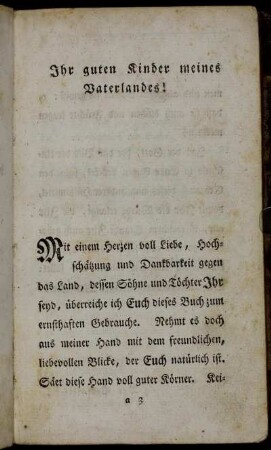 Ihr guten Kinder meines
Vaterlandes!
Mit einem Herzen voll Liebe, Hoch-
schätzung und Dankbarkeit gegen
das Land, dessen Söhne und Töchter Ihr
seyd, überreiche ich Euch dieses Buch zum
ernsthaften Gebrauche. Nehmt es doch
aus meiner Hand mit dem freundlichen,
liebevollen Blicke, der Euch natürlich ist.
Säet diese Hand voll guter Körner. Kei-
a 3